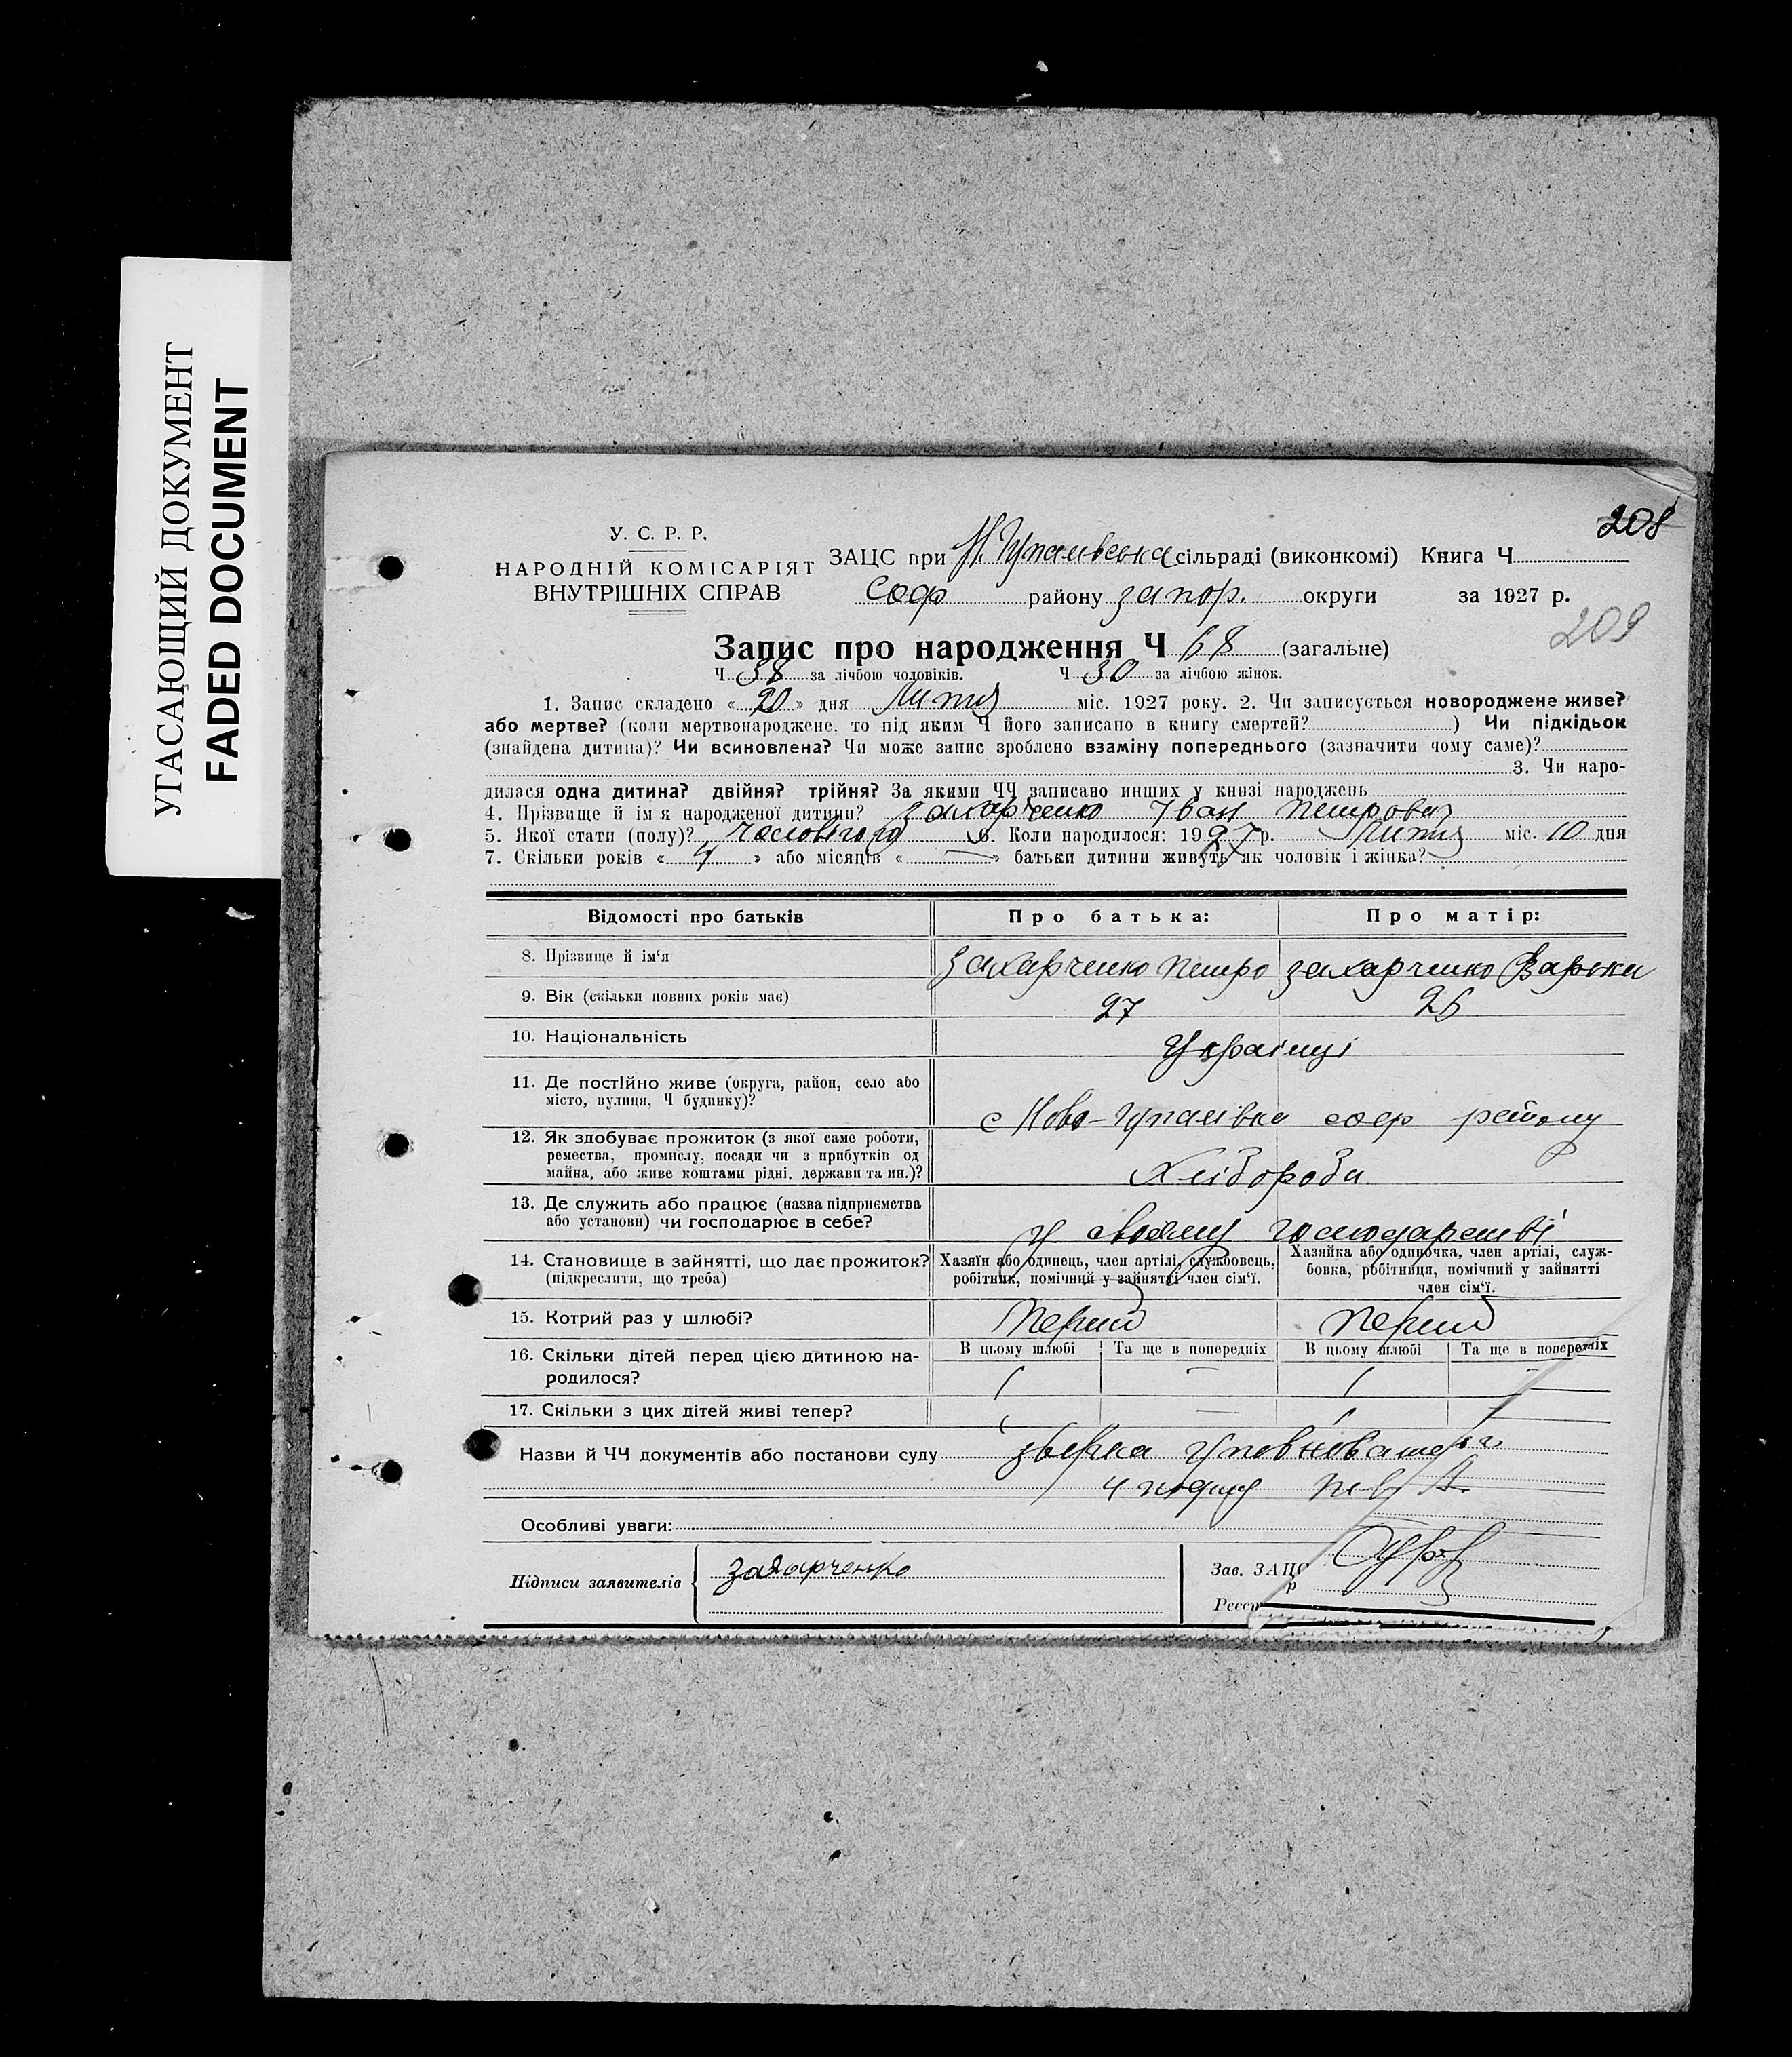 УГАСАЮЩИЙ ДОКУМЕНТ
FADED DOCUMENT
208
209
У. С. Р. Р.
НАРОДНІЙ КОМІСАРІЯТ
ВНУТРІШНІХ СПРАВ
ЗАЦС при Н. Гупалівська сільраді (виконкомі) Книга Ч
Соф району запор. округи за 1927 р.
Запис про народження Ч 68 (загальне)
Ч 38 за лічбою чоловіків. Ч 30 за лічбою жінок.
1. Запис складено «20» дня Липня міс. 1927 року. 2. Чи записується новороджене живе?
або мертве? (коли мертвонароджене, то під яким Ч його записано в книгу смертей? ) Чи підкідьок
(знайдена дитина)? Чи всиновлена? Чи може запис зроблено взаміну попереднього (зазначити чому саме)?
3. Чи наро-
дилася одна дитина? двійня? трійня? За якими ЧЧ записано инших у книзі народжень
4. Прізвище й ім'я народженої дитини? Захарченко Іван Петрович
5. Якої стати (полу)? Чоловічого 6. Коли народилося: 1927 р. Липня міс. 10 дня
7. Скільки років «4» або місяців « — » батьки дитини живуть як чоловік і жінка?
Відомості про батьків Про батька: Про матір:
8. Прізвище й ім'я Захарченко Петро Захарченко Варька
9. Вік (скільки повних років має) 27 26
10. Національність Українці
11. Де постійно живе (округа, район, село або
місто, вулиця, Ч будинку)? с Ново-Гупалівка соф району
12. Як здобуває прожиток (з якої саме роботи,
ремества, промислу, посади чи з прибутків од
майна, або живе коштами рідні, держави та ин.)? Хлібороби
13. Де служить або працює (назва підприємства
або установи) чи господарює в себе? у своєму господарстві
14. Становище в зайнятті, що дає прожиток?
(підкреслити, що треба)
Хазяїн або одинець, член артілі, службовець,
робітник, помічний у зайнятті член сім'ї.
Хазяйка або одиночка, член артілі, служ-
бовка, робітниця, помічний у зайнятті
член сім'ї.
15. Котрий раз у шлюбі? Перший Перший
16. Скільки дітей перед цією дитиною на-
родилося?
В цьому шлюбі Та ще в попередніх В цьому шлюбі Та ще в попередніх
1 — 1 —
17. Скільки з цих дітей живі тепер? 1 — 1
Назви й ЧЧ документів або постанови суду
Особливі уваги:
Підписи заявителів Захарченко
Зав. ЗАЦС
Реєст